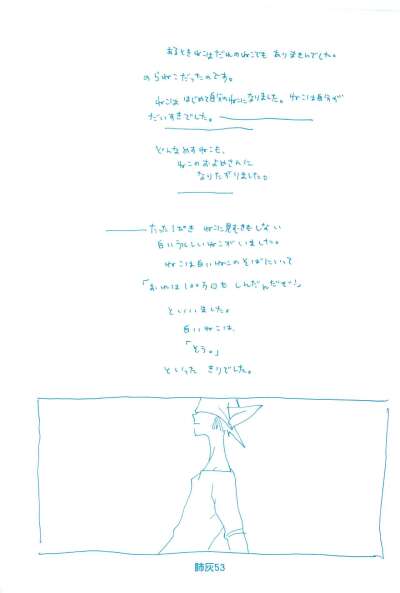 あるとき ねこはだれのねこでも ありませんでした。
のらねこだったのです。
ねこは はじめて自分のねこになりました。ねこは自分が
だいすきでした。
どんなめすねこも、
ねこのおよめさんに
なりたがりました。
たった1ぴき ねこに見むきもしない
白いうつくしいねこがいました。
ねこは白いねこのそばにいって
「おれは100万回も しんだんだぜ!」
といいました。
白いねこは、
「そう。」
といった きりでした。
肺灰53